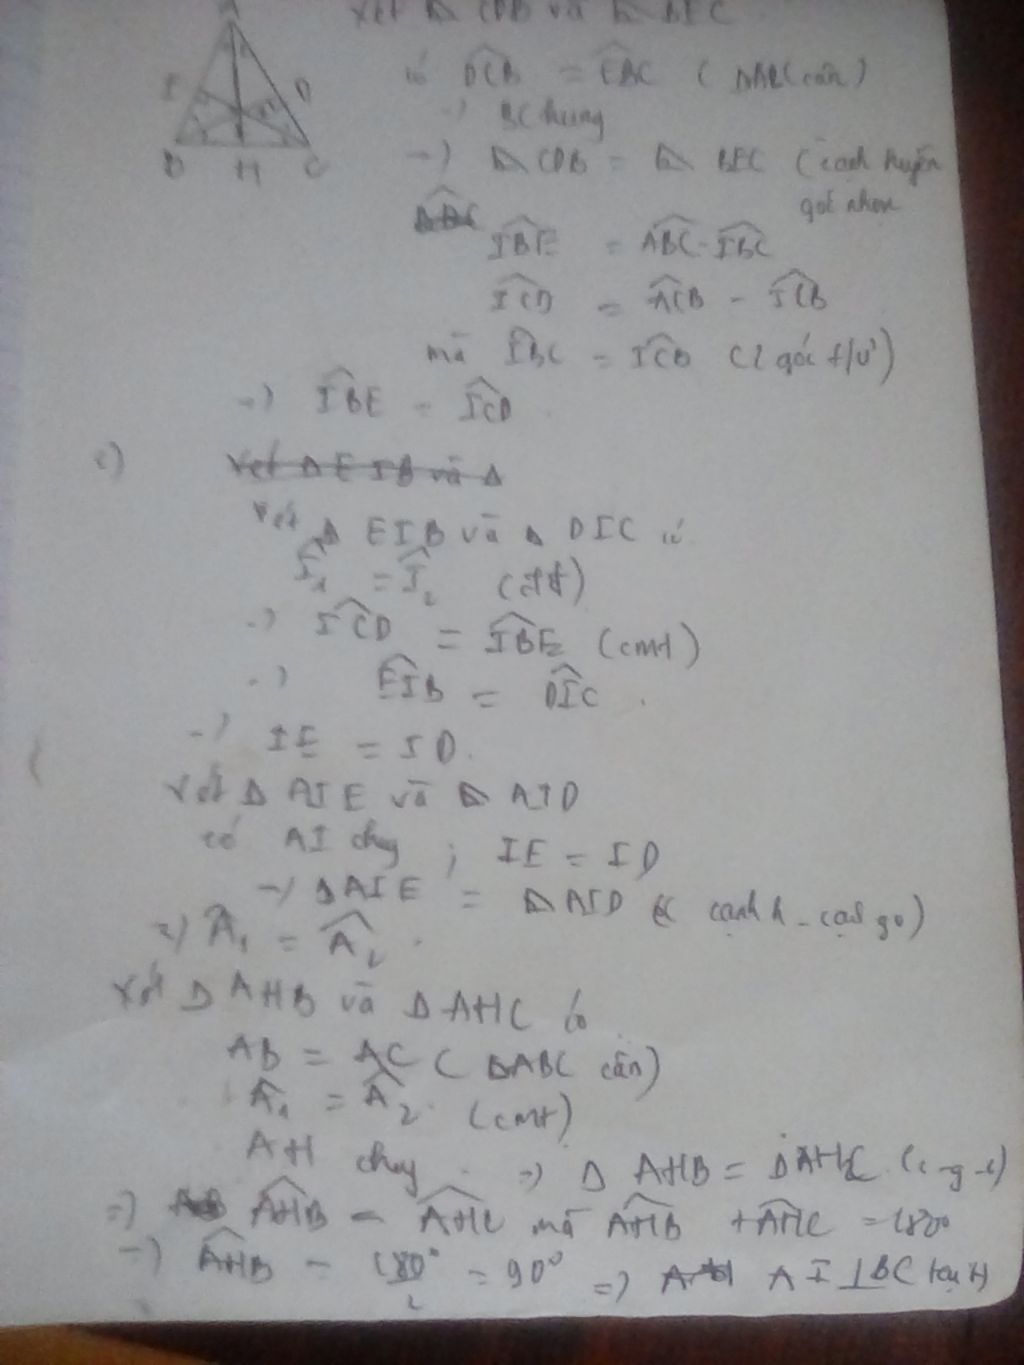 A
E D
B H C
xét Δ CDB và Δ BEC
có D̂CB = ÊBC ( ΔABC cân)
-) BC chung
-) Δ CDB = Δ BEC ( cạnh huyền
góc nhọn
IB̂E = AB̂C - IB̂C
IĈD = AĈB - IĈB
mà IB̂C = IĈB (2 góc t/ư)
=) IB̂E = IĈD
c) Xét Δ E I B và Δ
Xét Δ EIB và Δ DIC có
Î₁ = Î₂ (đđ)
-) IĈD = IB̂E (cmt)
-) EÎB = DÎC .
-) IE = ID.
Xét Δ AIE và Δ AID
có AI chung ; IE = ID
-) ΔAIE = ΔAID ( cạnh h - cạnh gv)
=) Â₁ = Â₂ .
Xét Δ AHB và Δ AHC có
AB = AC ( ΔABC cân)
Â₁ = Â₂ (cmt)
AH chung =) Δ AHB = ΔAHC (c-g-c)
=) AĤB = AĤC mà AĤB + AĤC = 180°
-) AĤB = 180°/2 = 90° =) AI ⊥ BC tại H